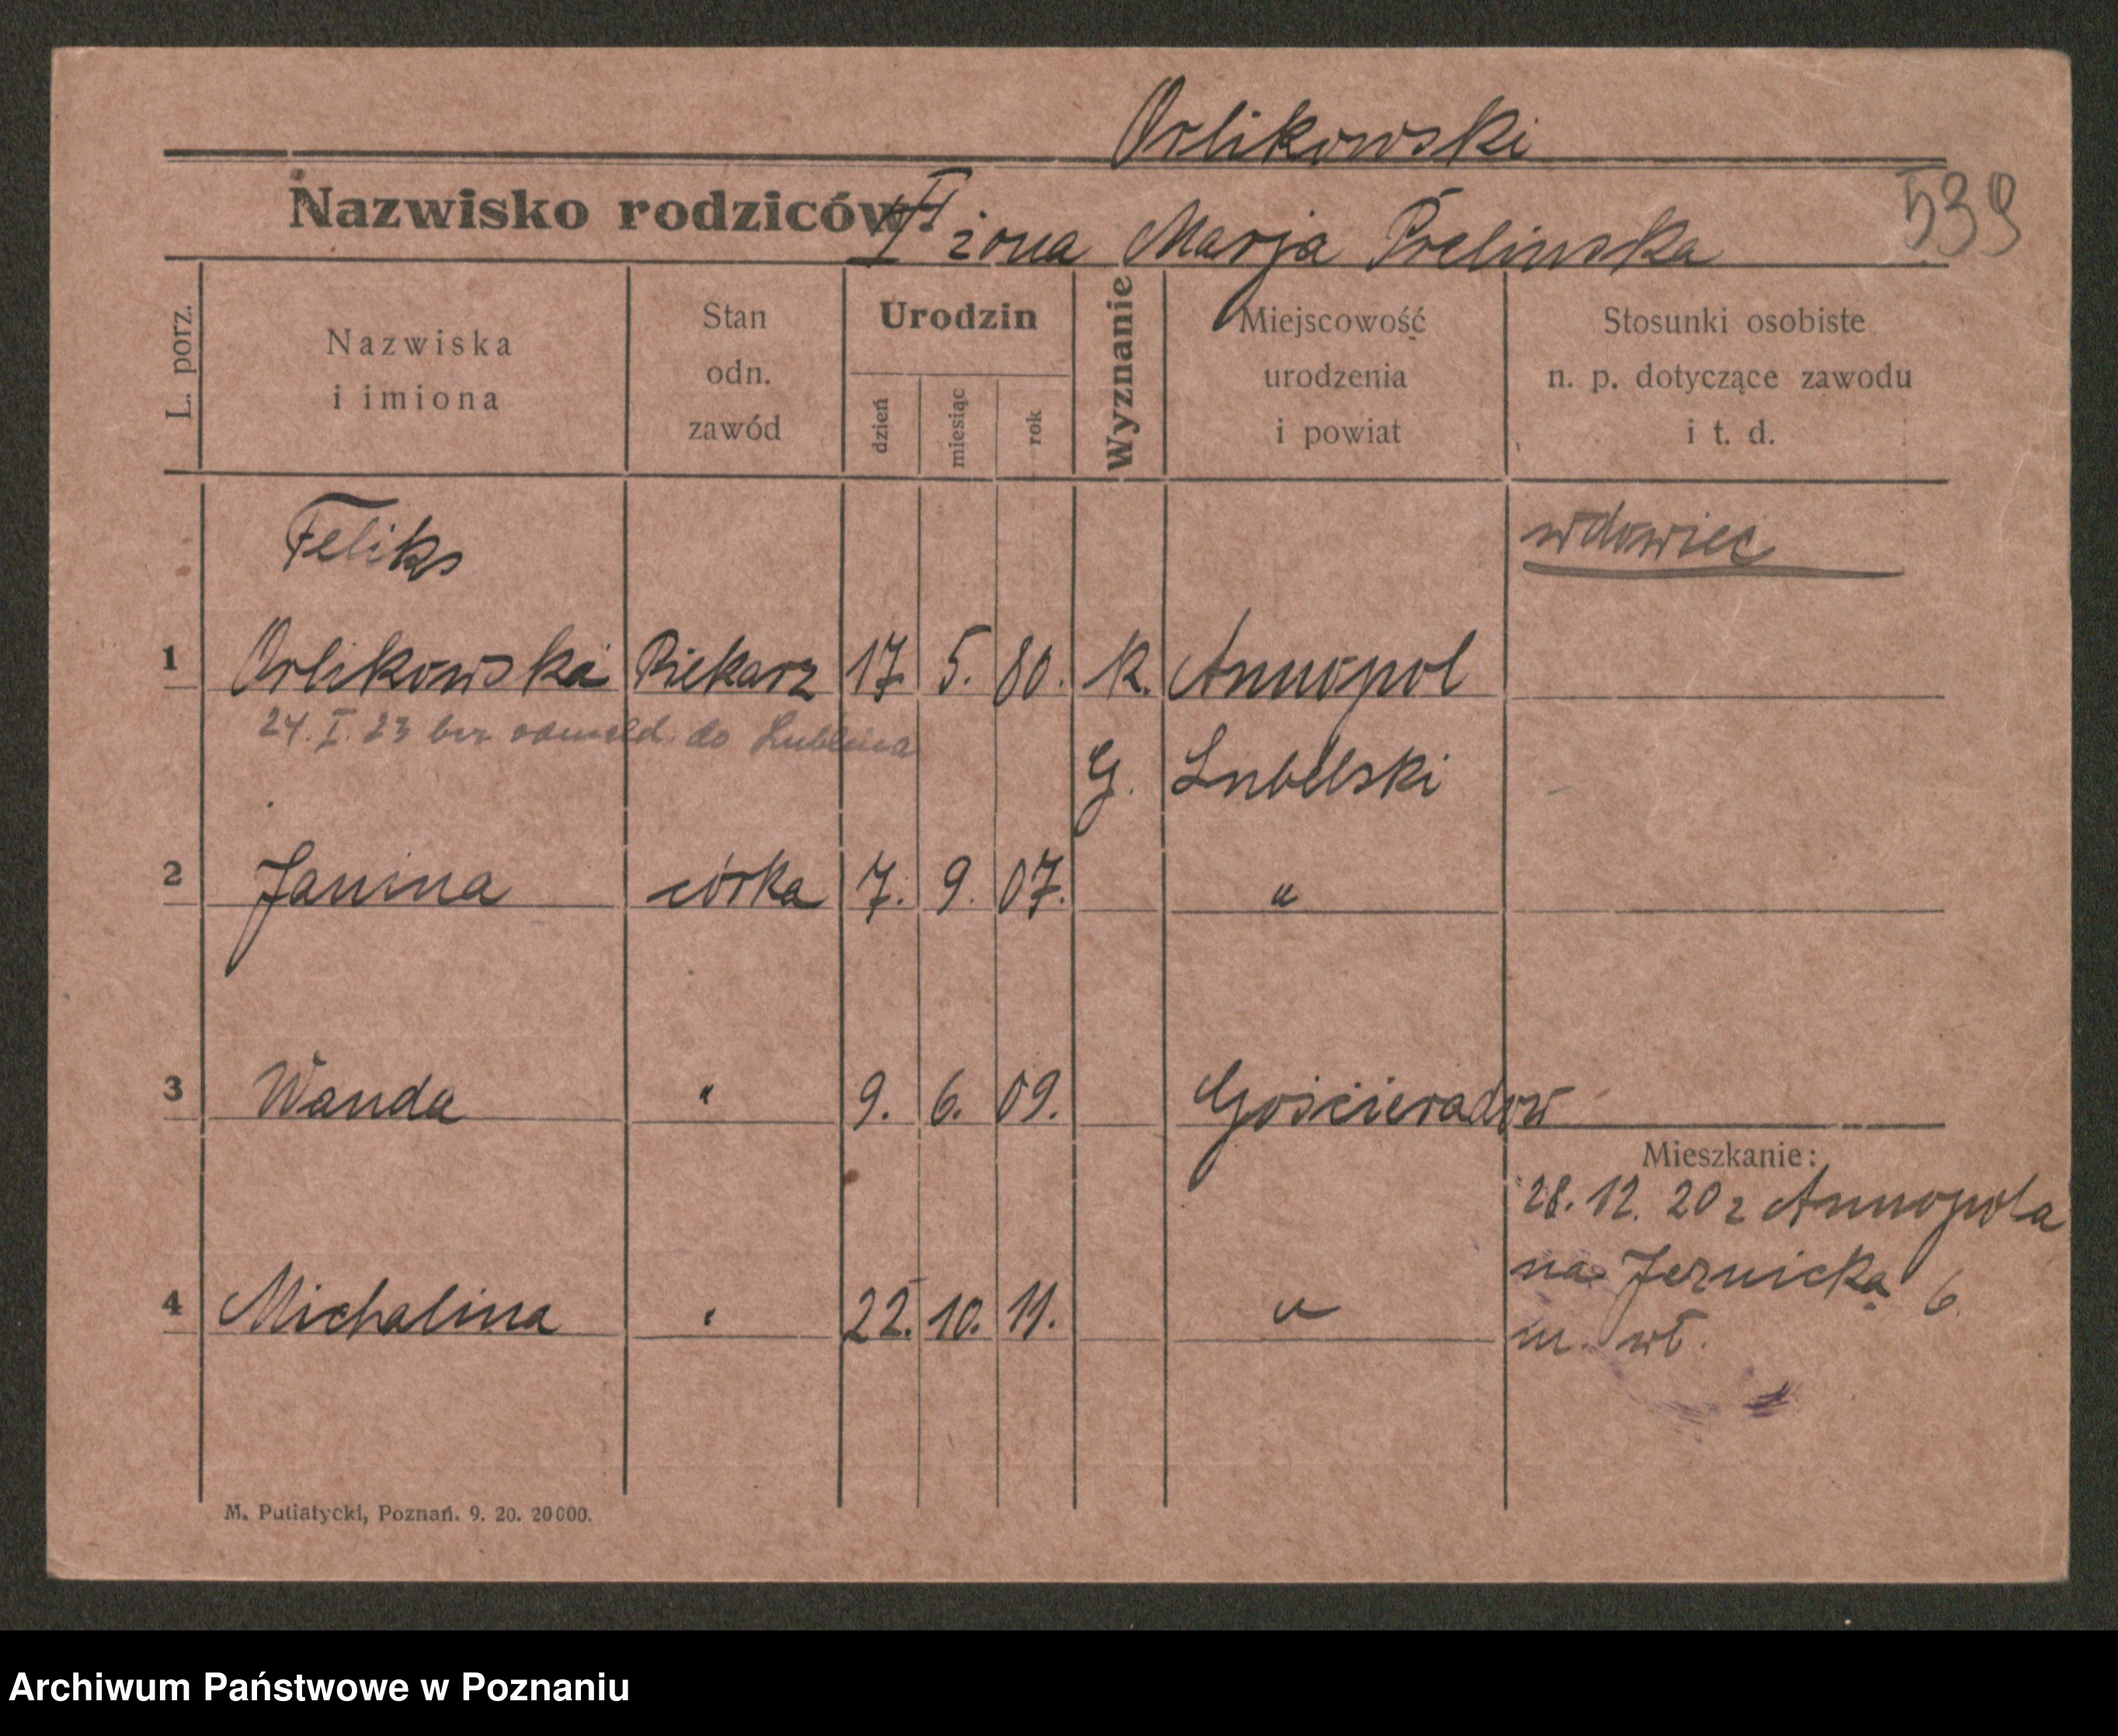 Orlikowski
Nazwisko rodziców:
I żona Marja Prelinska
539
L. porz.
Nazwiska
i imiona
Stan
odn.
zawód
Urodzin
dzień
miesiąc
rok
Wyznanie
Miejscowość
urodzenia
i powiat
Stosunki osobiste
n. p. dotyczące zawodu
i t. d.
Feliks
wdowiec
1 Orlikowski Piekarz 17. 5. 80. k. Annopol
24. I. 23 bez odmeld. do Lublina
G. Lubelski
2 Janina córka 7. 9. 07. "
3 Wanda " 9. 6. 09. Gościeradow
Mieszkanie:
28. 12. 20 z Annopola
na 6
4 Michalina " 22. 10. 11. "
m. wł.
M. Putiatycki, Poznań. 9. 20. 20000.
Archiwum Państwowe w Poznaniu